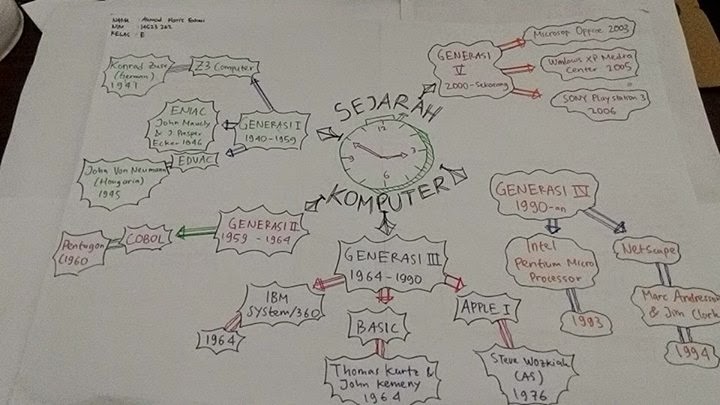 NAMA : Ahmad
NIM :
KELAS : E
SEJARAH
KOMPUTER
12
3
6
Z3 Computer
Konrad Zuse
(German)
1941
ENIAC
John Mauchly
& J. Presper
Ecker 1946
GENERASI I
1940-1959
EDVAC
John Von Neumann
(Hongaria)
1945
GENERASI II
1959 - 1964
COBOL
Pentagon
1960
GENERASI III
1964-1990
IBM
System/360
1964
BASIC
Thomas Kurtz &
John Kemeny
1964
APPLE I
Steve Wozkiah
(AS)
1976
GENERASI IV
1990-an
Intel
Pentium Micro
Processor
1993
Netscape
Marc Andresson
& Jim Clark
1994
GENERASI
V
2000-Sekarang
Microsop Oppice 2003
Windows XP Media
Center 2005
SONY Play Station 3
2006